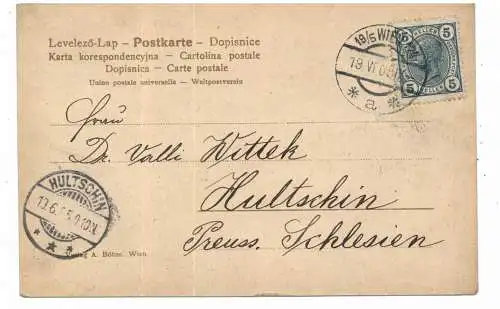 Levelező-Lap – Postkarte – Dopisnice
Karta korespondencyjna – Cartolina postale
Dopisnica – Carte postale
Union postale universelle – Weltpostverein
19/5 WIEN
5 5
HELLER
5 5
HELLER
Frau
Dr. Valli Wittek
Hultschin
Preuss. Schlesien
HULTSCHIN
A. Böhm, Wien